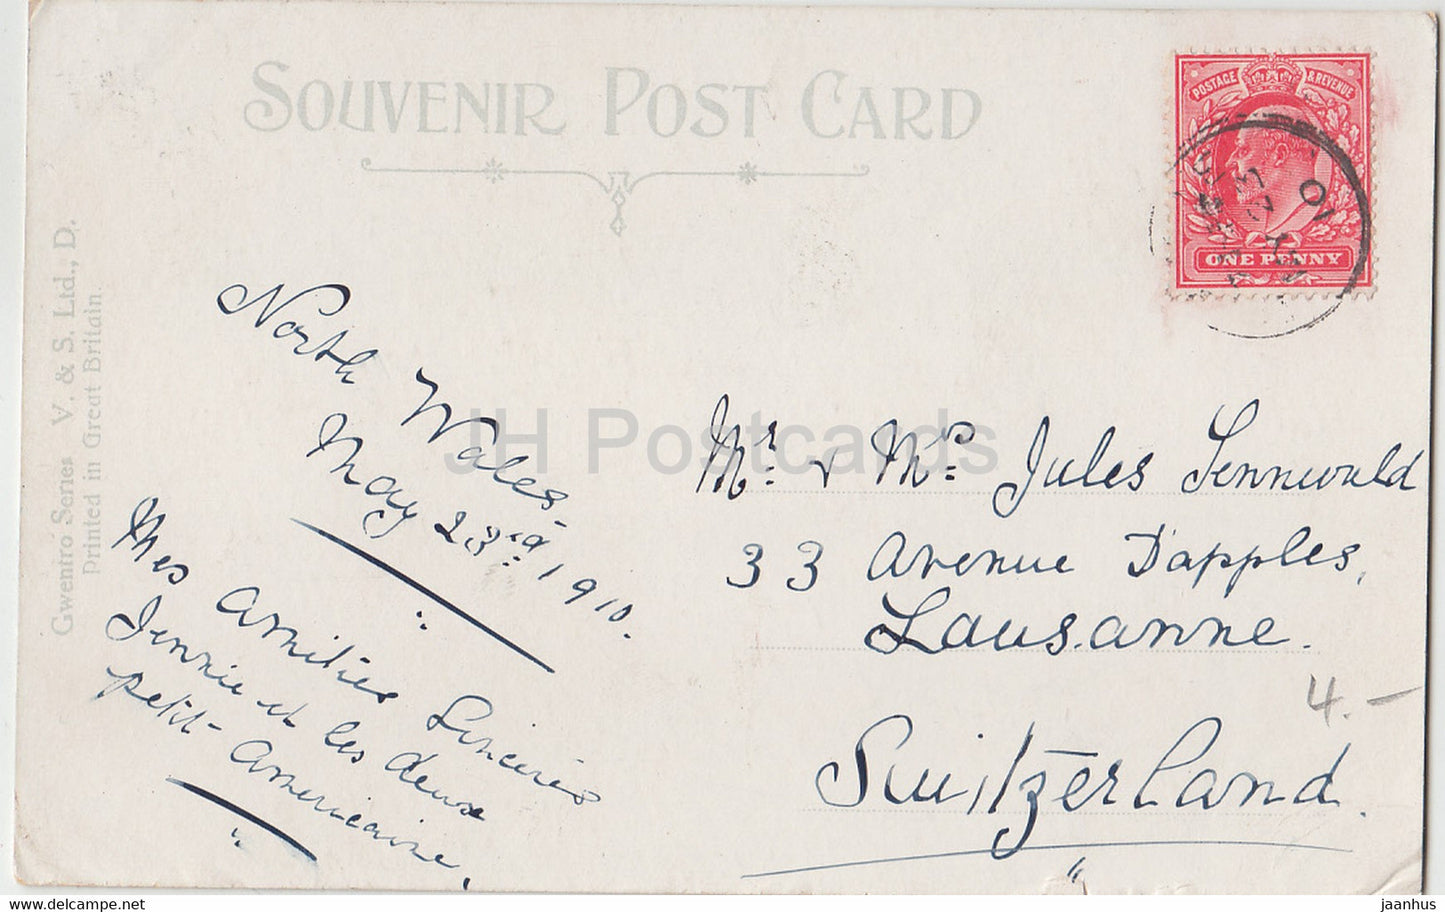 SOUVENIR POST CARD
POSTAGE & REVENUE
ONE PENNY
MY 23
10
Gwentro Series V. & S. Ltd., D.
Printed in Great Britain.
North Wales-
May 23rd 1910.
Mes Amitiés Sincères
Jennie et les deux
petit- Americaine.
Mr. & Mrs. Jules Sennwald
33 Avenue D'apples,
Lausanne.
Switzerland.
4.-
JH Postcards
www.delcampe.net
jaanhus